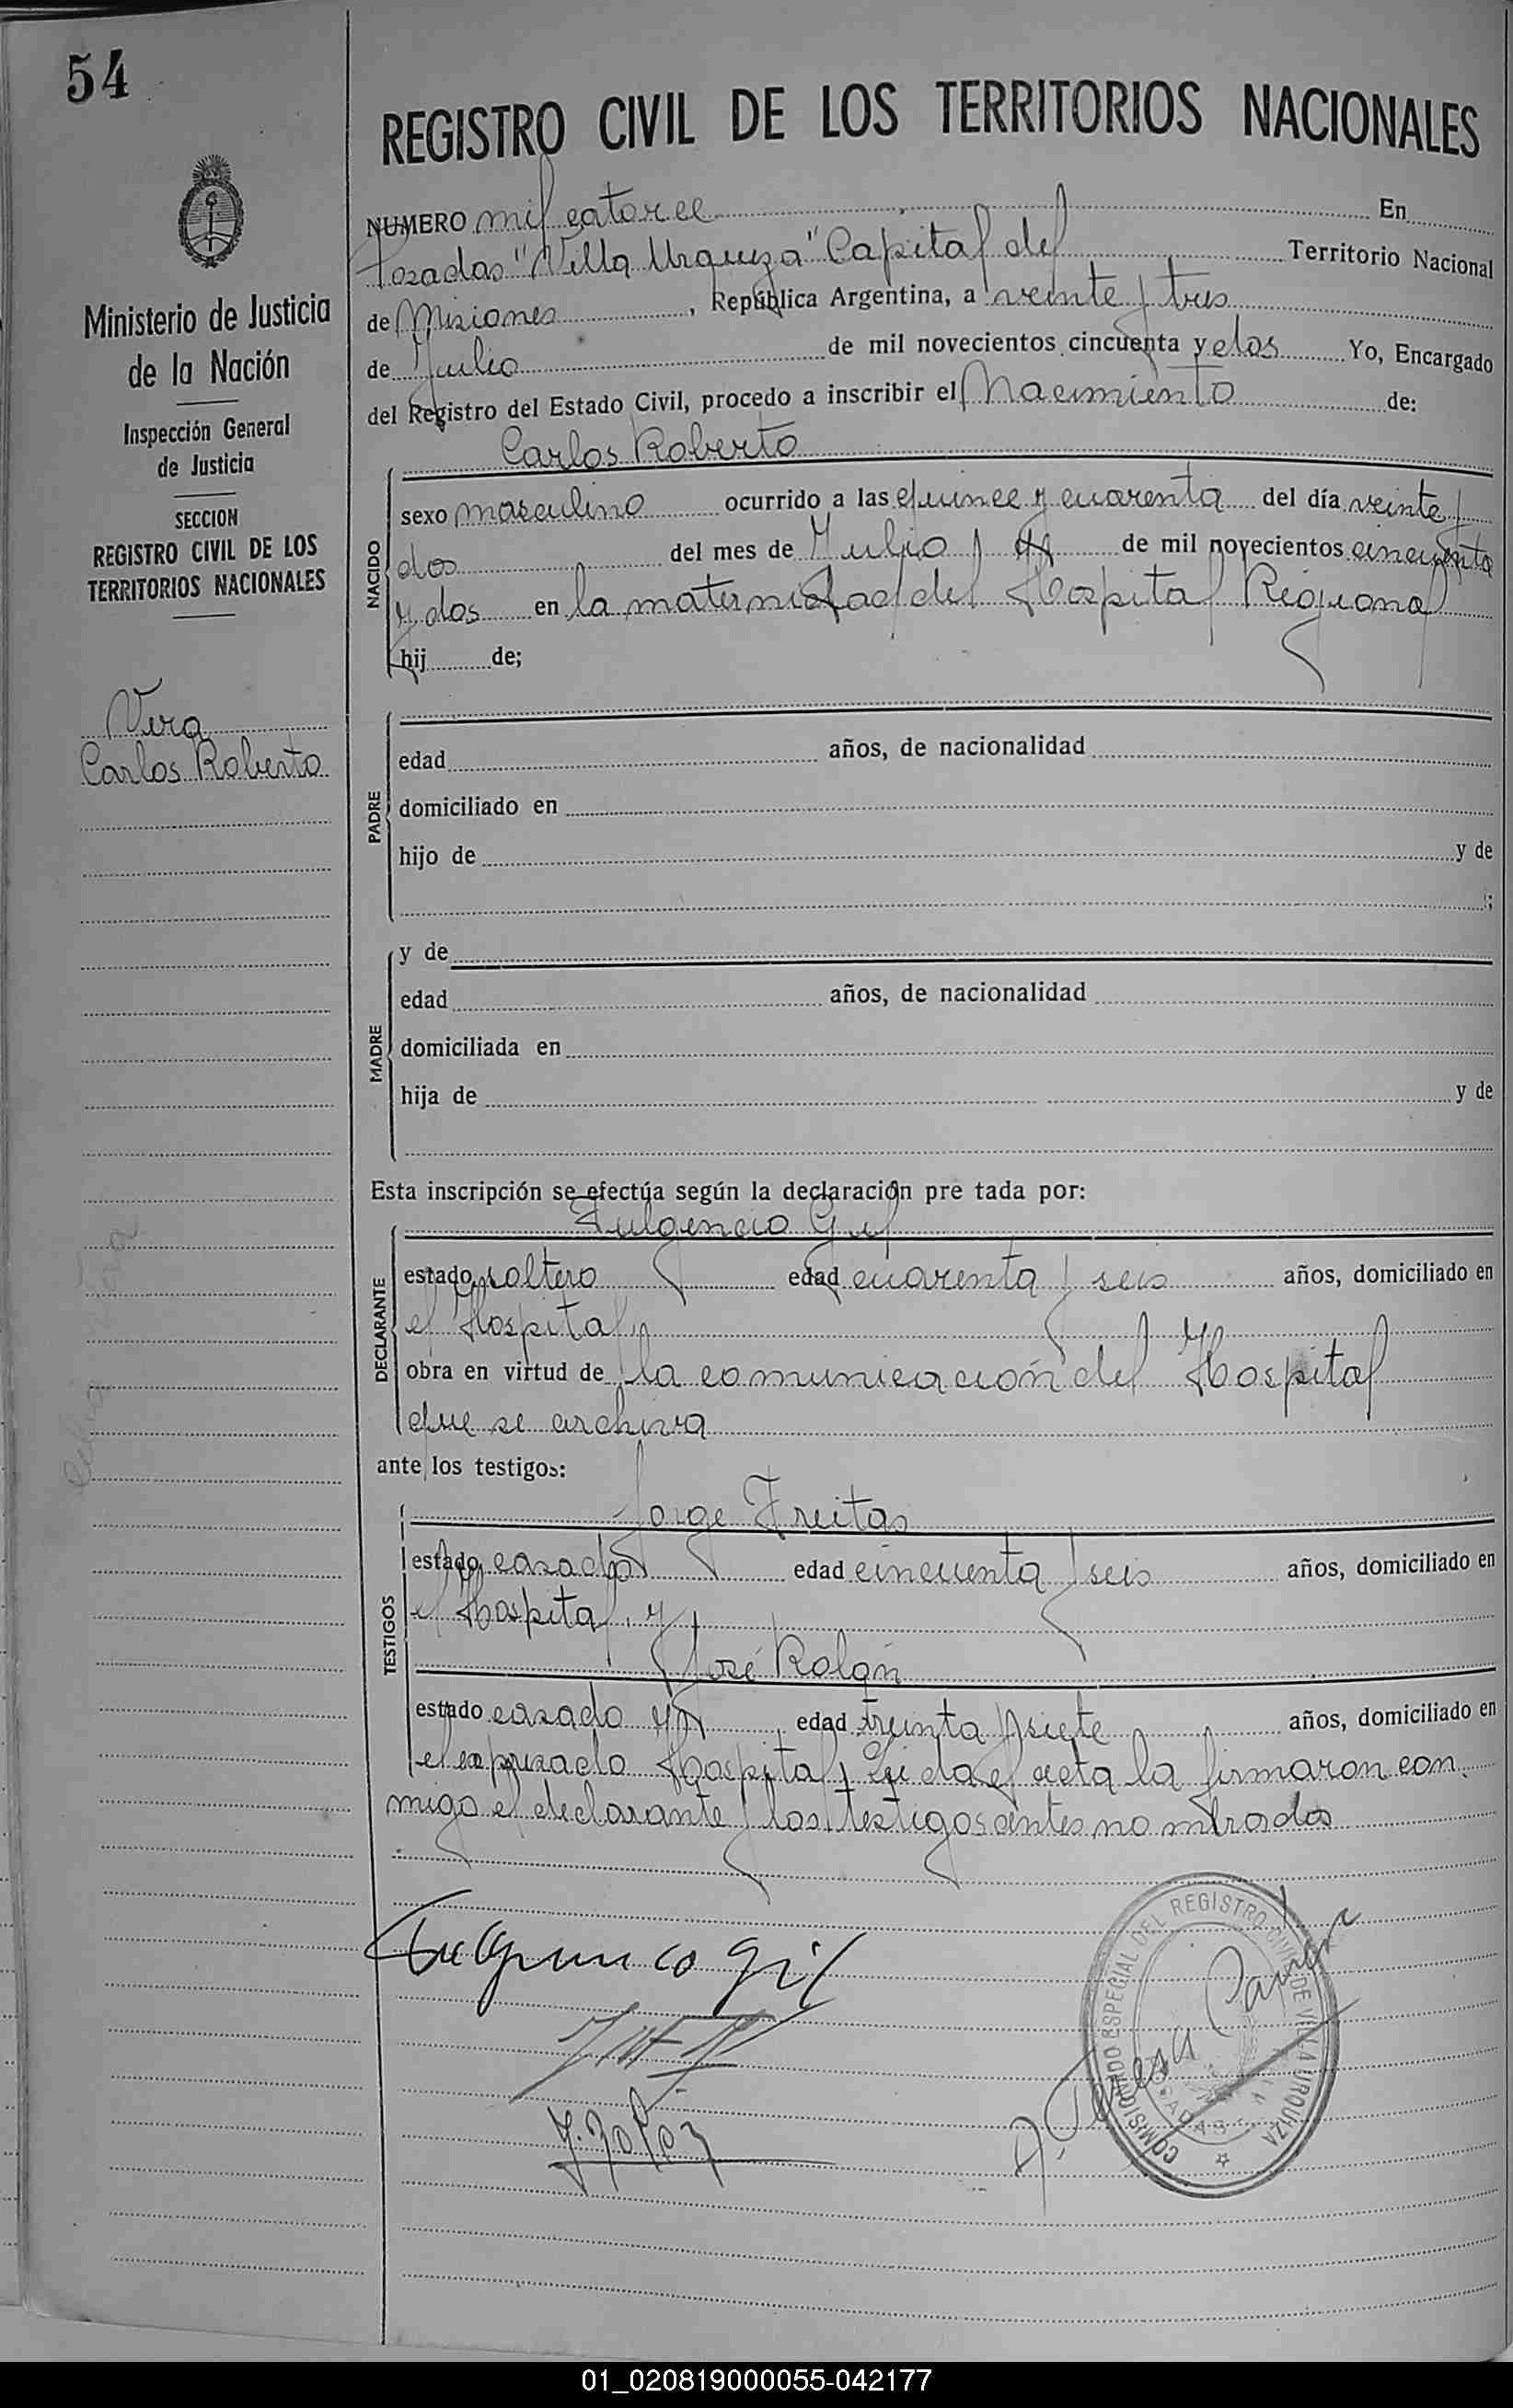 54
REGISTRO CIVIL DE LOS TERRITORIOS NACIONALES
Ministerio de Justicia
de la Nación
Inspección General
de Justicia
SECCION
REGISTRO CIVIL DE LOS
TERRITORIOS NACIONALES
Vera
Carlos Roberto
NUMERO mil catorce En
Posadas "Villa Urquiza" Capital del Territorio Nacional
de Misiones, República Argentina, a veinte y tres
de Julio de mil novecientos cincuenta y dos Yo, Encargado
del Registro del Estado Civil, procedo a inscribir el Nacimiento de:
Carlos Roberto
NACIDO
sexo masculino ocurrido a las quince y cuarenta del día veinte y
dos del mes de Julio de mil novecientos cincuenta
y dos en la maternidad del Hospital Regional
hij de;
PADRE
edad años, de nacionalidad
domiciliado en
hijo de y de
;
MADRE
y de
edad años, de nacionalidad
domiciliada en
hija de y de
Esta inscripción se efectúa según la declaración pre tada por:
DECLARANTE
Fulgencio Gil
estado soltero edad cuarenta y seis años, domiciliado en
el Hospital
obra en virtud de la comunicación del Hospital
que se archiva
ante los testigos:
TESTIGOS
Jorge Freitas
estado casado edad cincuenta y seis años, domiciliado en
el Hospital, y
José Rolón
estado casado edad treinta y siete años, domiciliado en
el expresado Hospital, Leida el acta la firmaron con
migo el declarante y los testigos antes nombrados
Fulgencio gil
COMISIONADO ESPECIAL DEL REGISTRO CIVIL DE VILLA URQUIZA
POSADAS
01_020819000055-042177